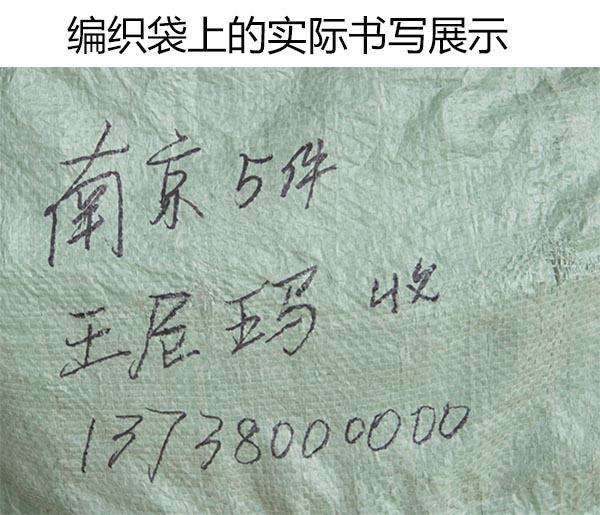 编织袋上的实际书写展示
南京5件
王尼玛 收
13738000000